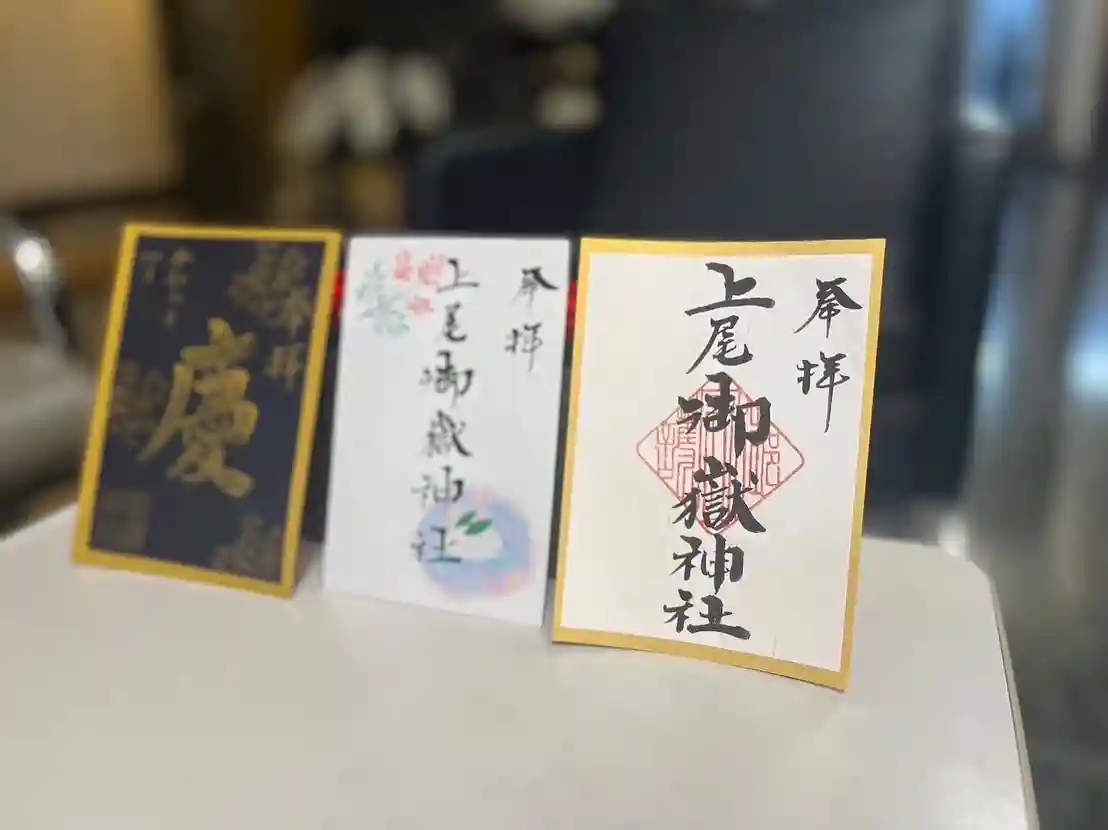 奉拝
上尾御嶽神社
奉拝
上尾御嶽神社
奉拝
慶